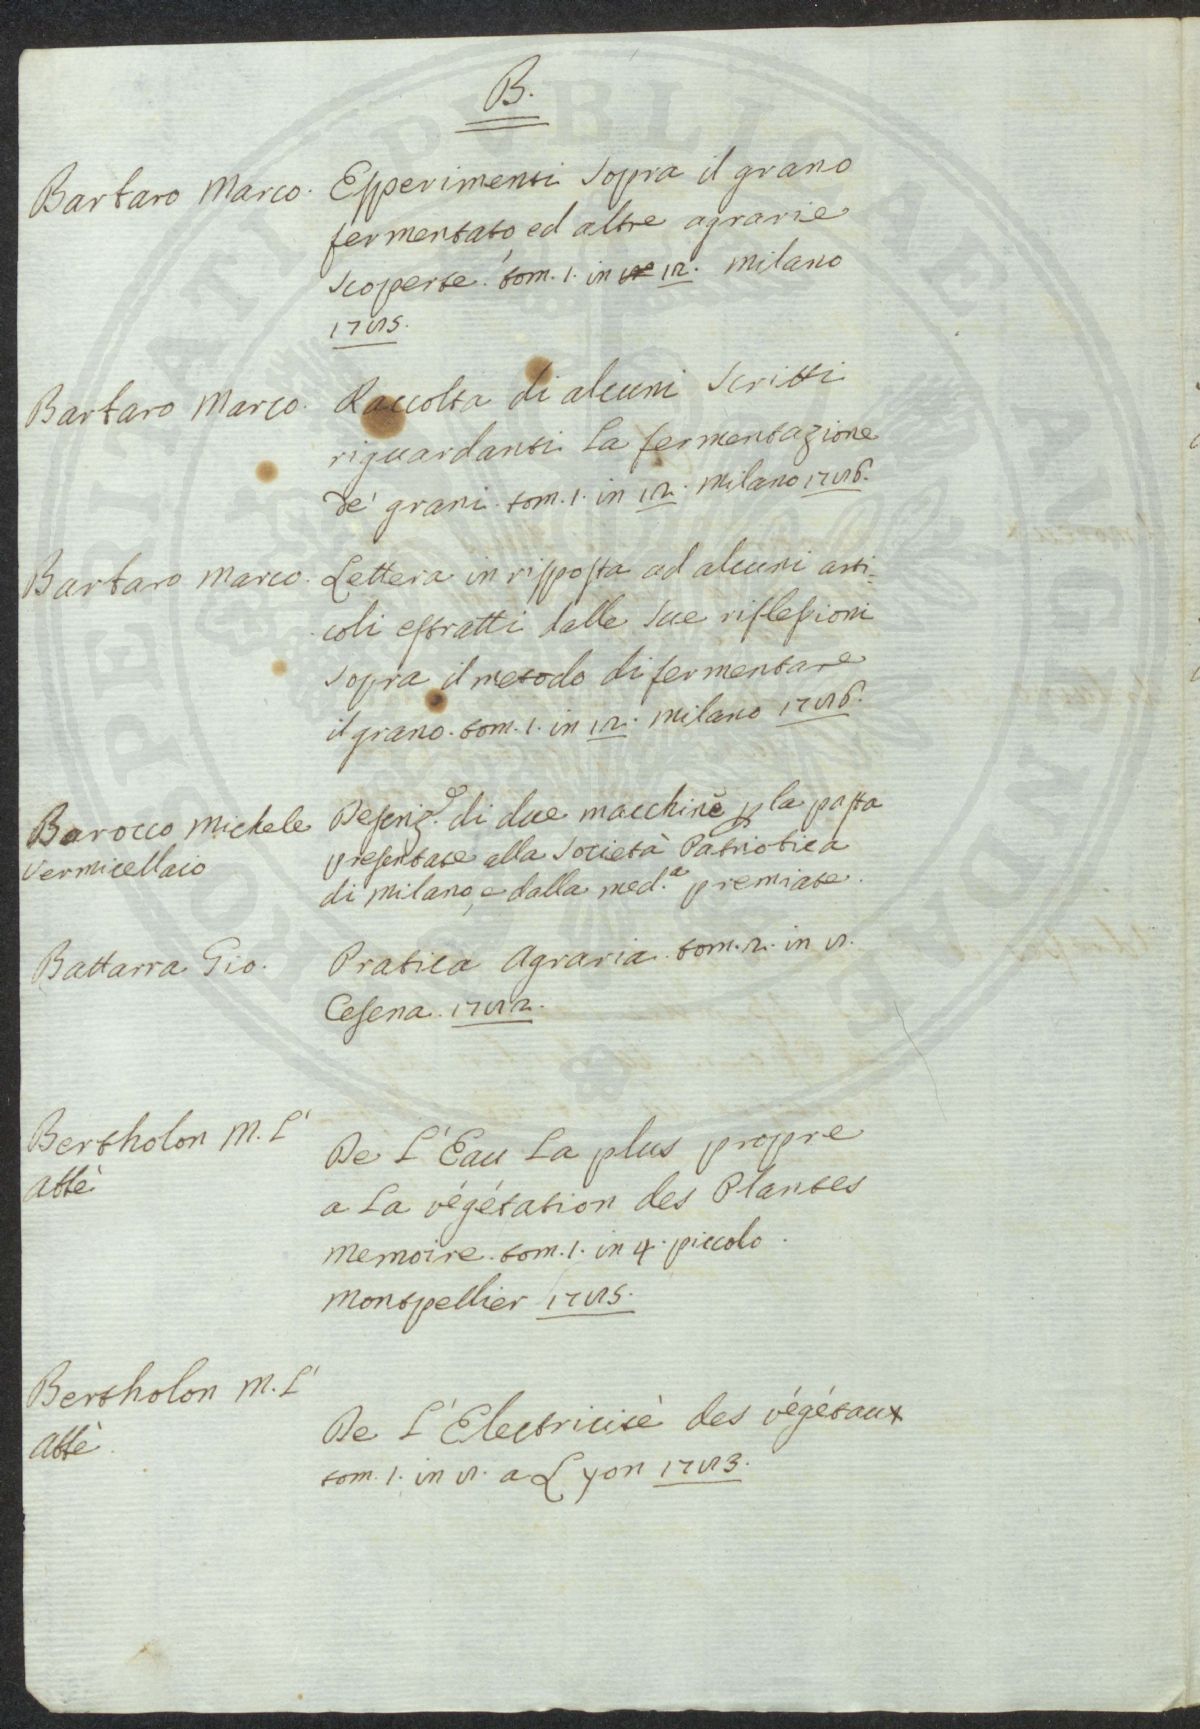 B.
Barbaro Marco. Esperimenti sopra il grano
fermentato, ed altre agrarie
scoperte. tom. 1. in 12. Milano
1785.
Barbaro Marco. Raccolta di alcuni scritti
riguardanti la fermentazione
de' grani. tom. 1. in 12. Milano 1786.
Barbaro Marco. Lettera in risposta ad alcuni arti=
coli estratti dalle sue riflessioni
sopra il metodo di fermentare
il grano. tom. 1. in 12. Milano 1786.
Barocco Michele Descriz.e di due macchine p la pasta
Vermicellaio presentate alla Società Patriotica
di Milano, e dalla med.a premiate.
Battarra Gio. Pratica Agraria. tom. 2. in 8.
Cesena. 1782.
Bertholon M. L' De L'Eau La plus propre
Abbè a La végétation des Plantes
memoire. tom. 1. in 4. piccolo.
Montpellier 1785.
Bertholon M. L' De L'Electricitè des végétaux
Abbè tom. 1. in 8. a Lyon 1783.